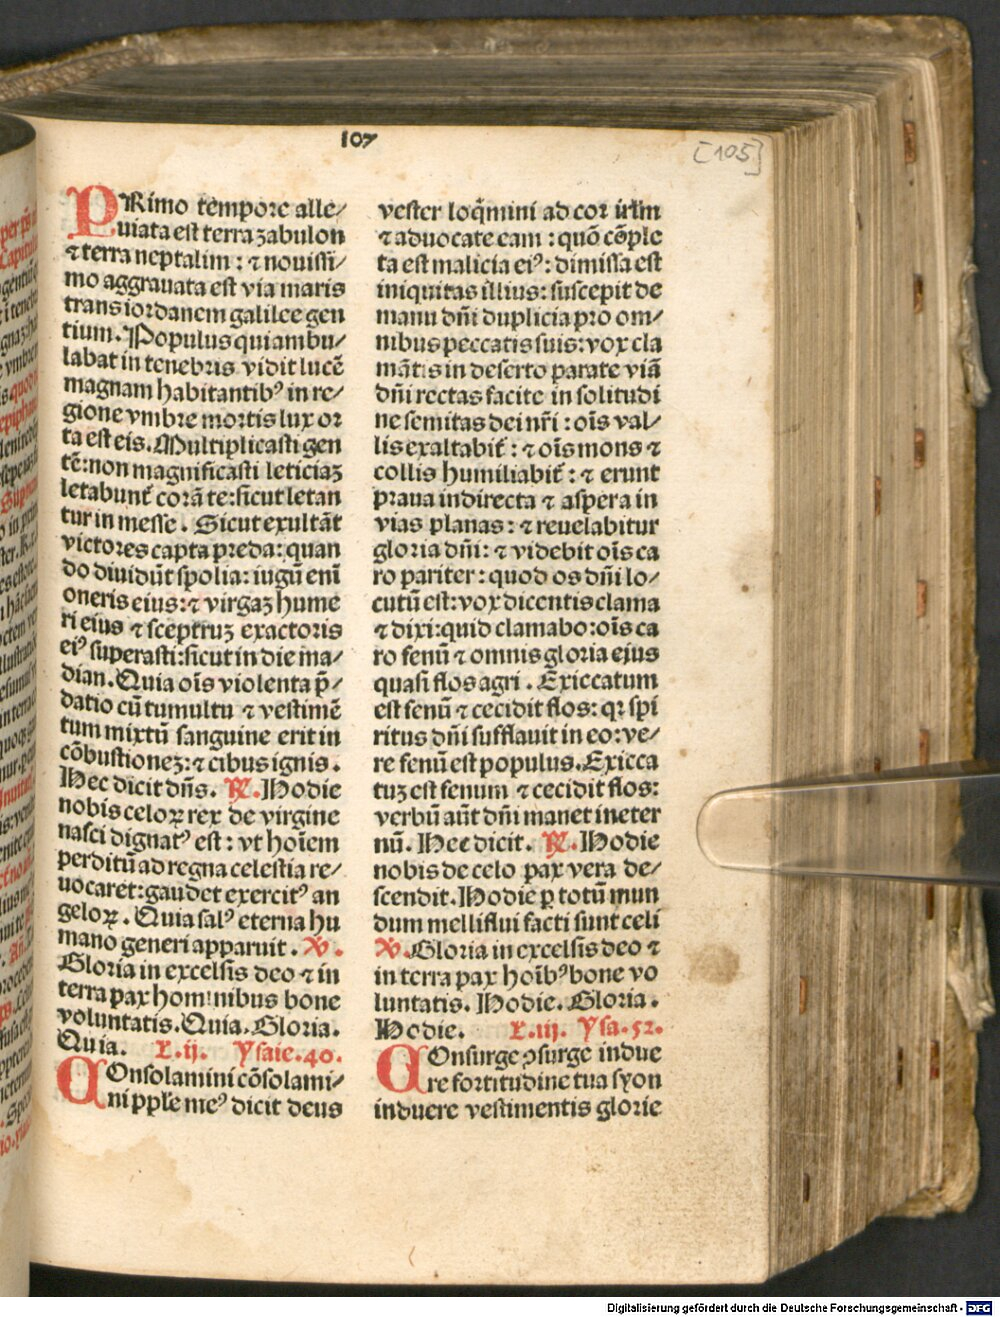 107
[105]
PRimo tempore alle/
uiata est terra zabulon
⁊ terra neptalim : ⁊ nouissi/
mo aggrauata est via maris
trans iordanem galilee gen
tium. Populus qui ambu/
labat in tenebris vidit lucē
magnam habitantibꝰ in re/
gione vmbre mortis lux or
ta est eis. Multiplicasti gen
tē: non magnificasti leticiaꝫ
letabunt᷑ corā te: sicut letan
tur in messe. Sicut exultāt
victores capta preda: quan
do diuidūt spolia: iugū enī
oneris eius: ⁊ virgaꝫ hume
ri eius ⁊ sceptruꝫ exactoris
eiꝰ superasti: sicut in die ma/
dian. Quia oīs violenta p̄/
datio cū tumultu ⁊ vestimē
tum mixtū sanguine erit in
cōbustioneꝫ: ⁊ cibus ignis.
Hec dicit dn̄s. ℟. Hodie
nobis celoꝝ rex de virgine
nasci dignatꝰ est : vt hoīem
perditū ad regna celestia re/
uocaret: gaudet exercitꝰ an
geloꝝ. Quia salꝰ eterna hu
mano generi apparuit. ℣.
Gloria in excelsis deo ⁊ in
terra pax hominibus bone
voluntatis. Quia. Gloria.
Quia. L. ij. Ysaie. 40.
COnsolamini cōsolami/
ni pp̄le meꝰ dicit deus
vester loq̄mini ad cor irl̄m
⁊ aduocate eam : quō cōple
ta est malicia eiꝰ: dimissa est
iniquitas illius: suscepit de
manu dn̄i duplicia pro om/
nibus peccatis suis: vox cla
mātis in deserto parate viā
dn̄i rectas facite in solitudi
ne semitas dei nr̄i : oīs val/
lis exaltabit᷑ : ⁊ oīs mons ⁊
collis humiliabit᷑ : ⁊ erunt
praua in directa ⁊ aspera in
vias planas : ⁊ reuelabitur
gloria dn̄i : ⁊ videbit oīs ca
ro pariter : quod os dn̄i lo/
cutū est: vox dicentis clama
⁊ dixi: quid clamabo: oīs ca
ro fenū ⁊ omnis gloria ejus
quasi flos agri. Exiccatum
est fenū ⁊ cecidit flos: qꝛ spi
ritus dn̄i sufflauit in eo: ve/
re fenū est populus. Exicca
tuꝫ est fenum ⁊ cecidit flos:
verbū aūt dn̄i manet in eter
nū. Hec dicit. ℟. Hodie
nobis de celo pax vera de/
scendit. Hodie ꝑ totū mun
dum melliflui facti sunt celi
℣. Gloria in excelsis deo ⁊
in terra pax hoībꝰ bone vo
luntatis. Hodie. Gloria.
Hodie. L. iij. Ysa. 52.
COnsurge ꝯsurge indue
re fortitudine tua syon
induere vestimentis glorie
Digitalisierung gefördert durch die Deutsche Forschungsgemeinschaft - DFG